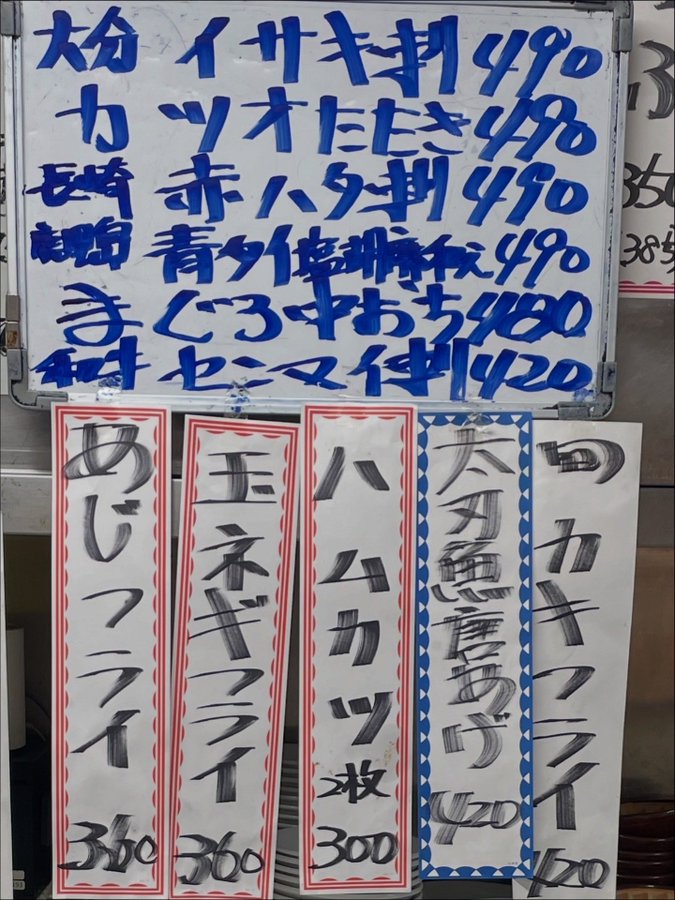 大分 イサキ刺 490
カツオたたき 490
長崎 赤ハタ刺 490
青タイ塩胡麻和え 490
まぐろ中おち 480
和牛 センマイ刺 420
あじフライ 360
玉ネギフライ 360
ハムカツ 2枚 300
太刀魚唐あげ 420
旬 カキフライ 420
350
385